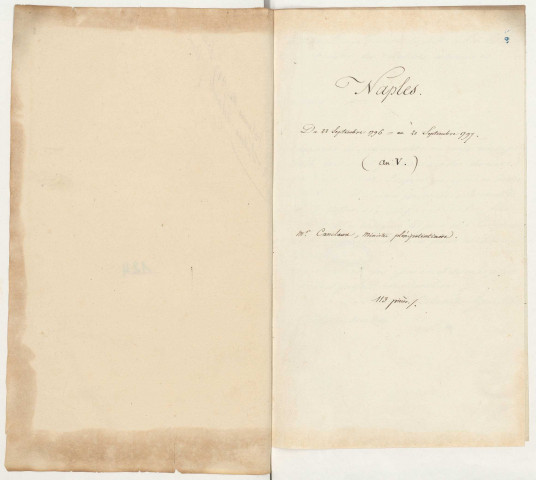 Naples.
Du 22 Septembre 1796 = au 21 Septembre 1797.
(an V.)
Mr. Canclaux, Ministre plénipotentiaire.
113 pièces.